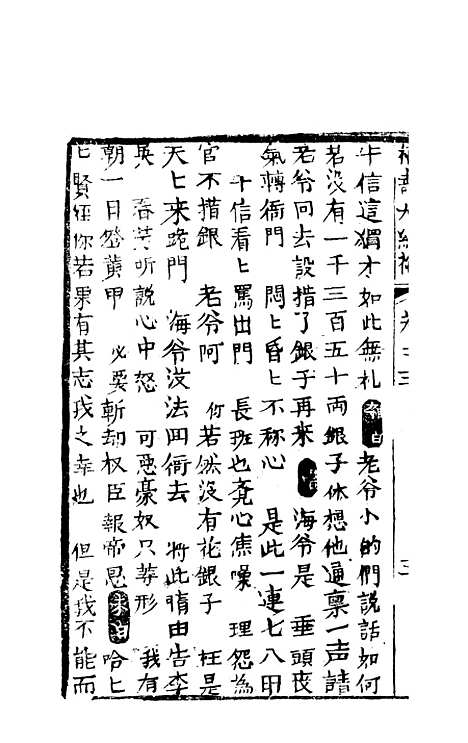 千信這獨才如此無礼 雜白 老爷小的們說話如何
若沒有一千三百五十両銀子休想他通禀一声請
老爷回去設措了銀子再来 海爷是 垂頭丧
氣轉衙門 悶匕昏匕不称心 是此一連七八日
千信看匕罵出門 長班也覺心焦噪 理怨為
官不措銀 老爷阿 你若然沒有花銀子 枉是
天匕来跪門 海爷沒法回衙去 将此情由告李
吳 春芳听說心中怒 可惡豪奴只等形 我有
朝一日登黄甲 必要斬却权臣報帝恩 末白 哈匕
匕賢侄你若果有其志我之幸也 但是我不能而